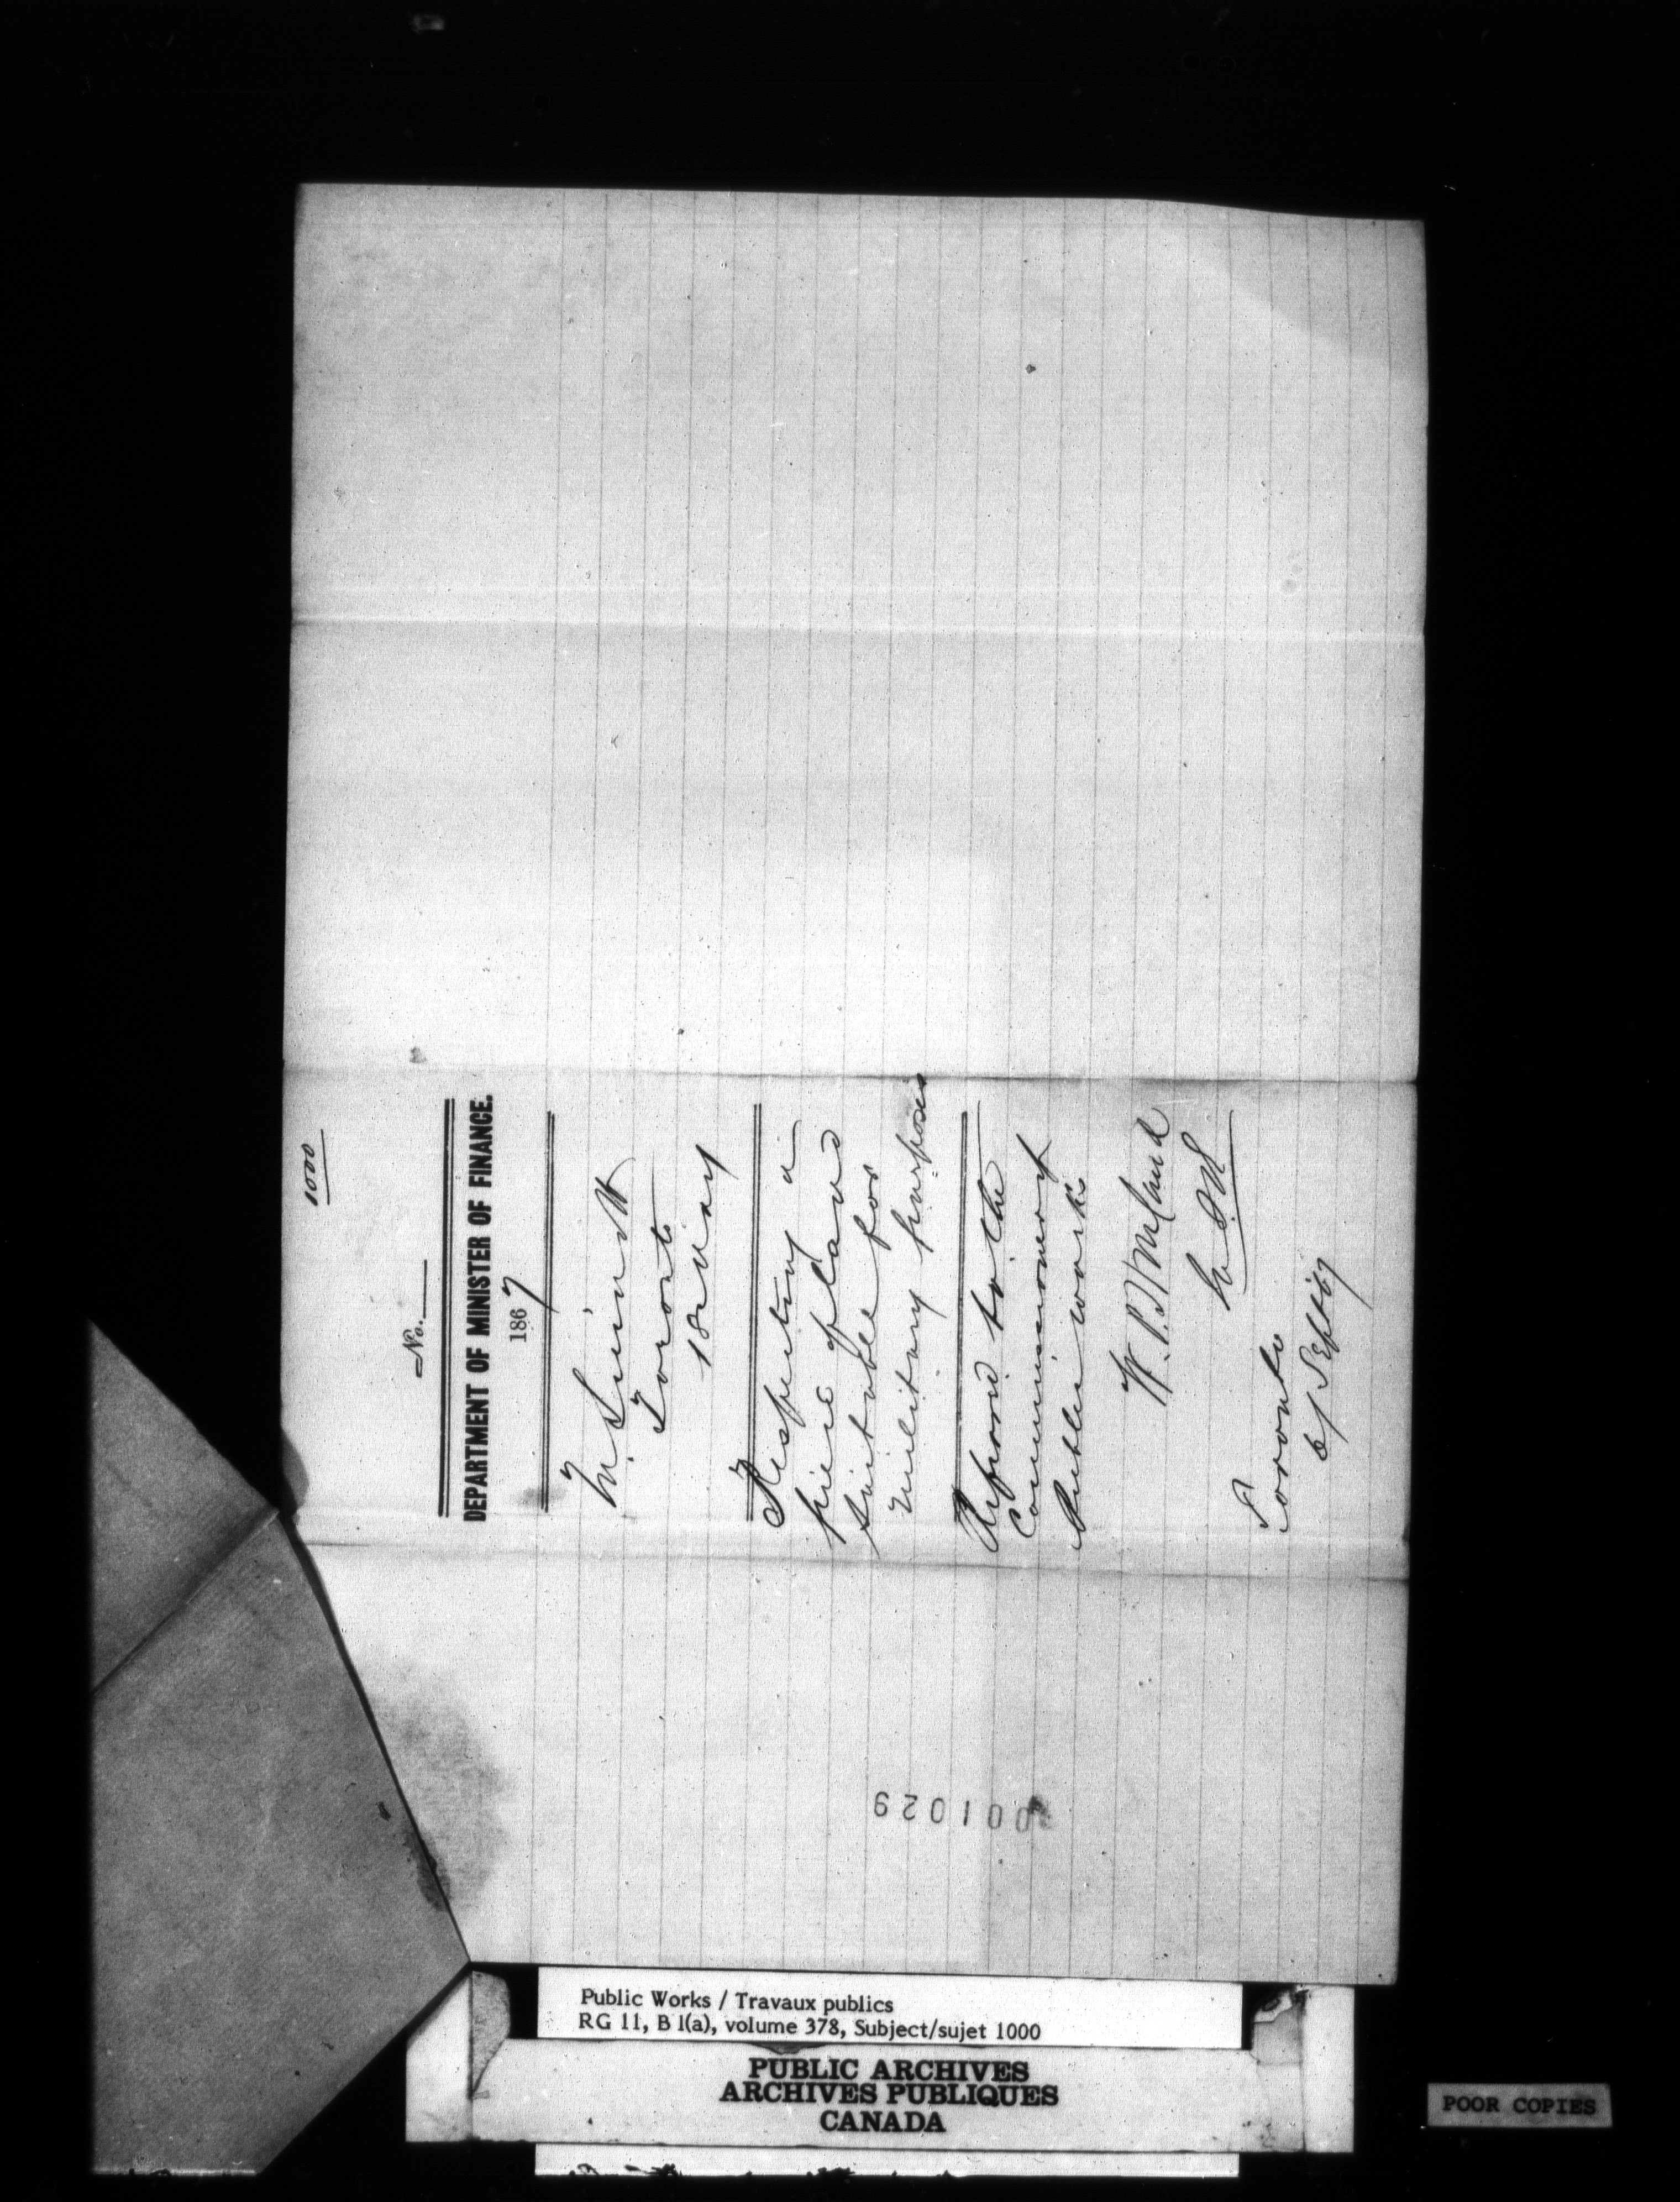 1000
No.
DEPARTMENT OF MINISTER OF FINANCE.
1867
Toronto
18 May
Respecting a
piece of land
suitable for
Military purposes
Referred to the
Commissioner of
Public works
W. P.
Toronto
6/ Sept/67
001029
Public Works / Travaux publics
RG 11, B 1(a), volume 378, Subject/sujet 1000
PUBLIC ARCHIVES
ARCHIVES PUBLIQUES
CANADA
POOR COPIES